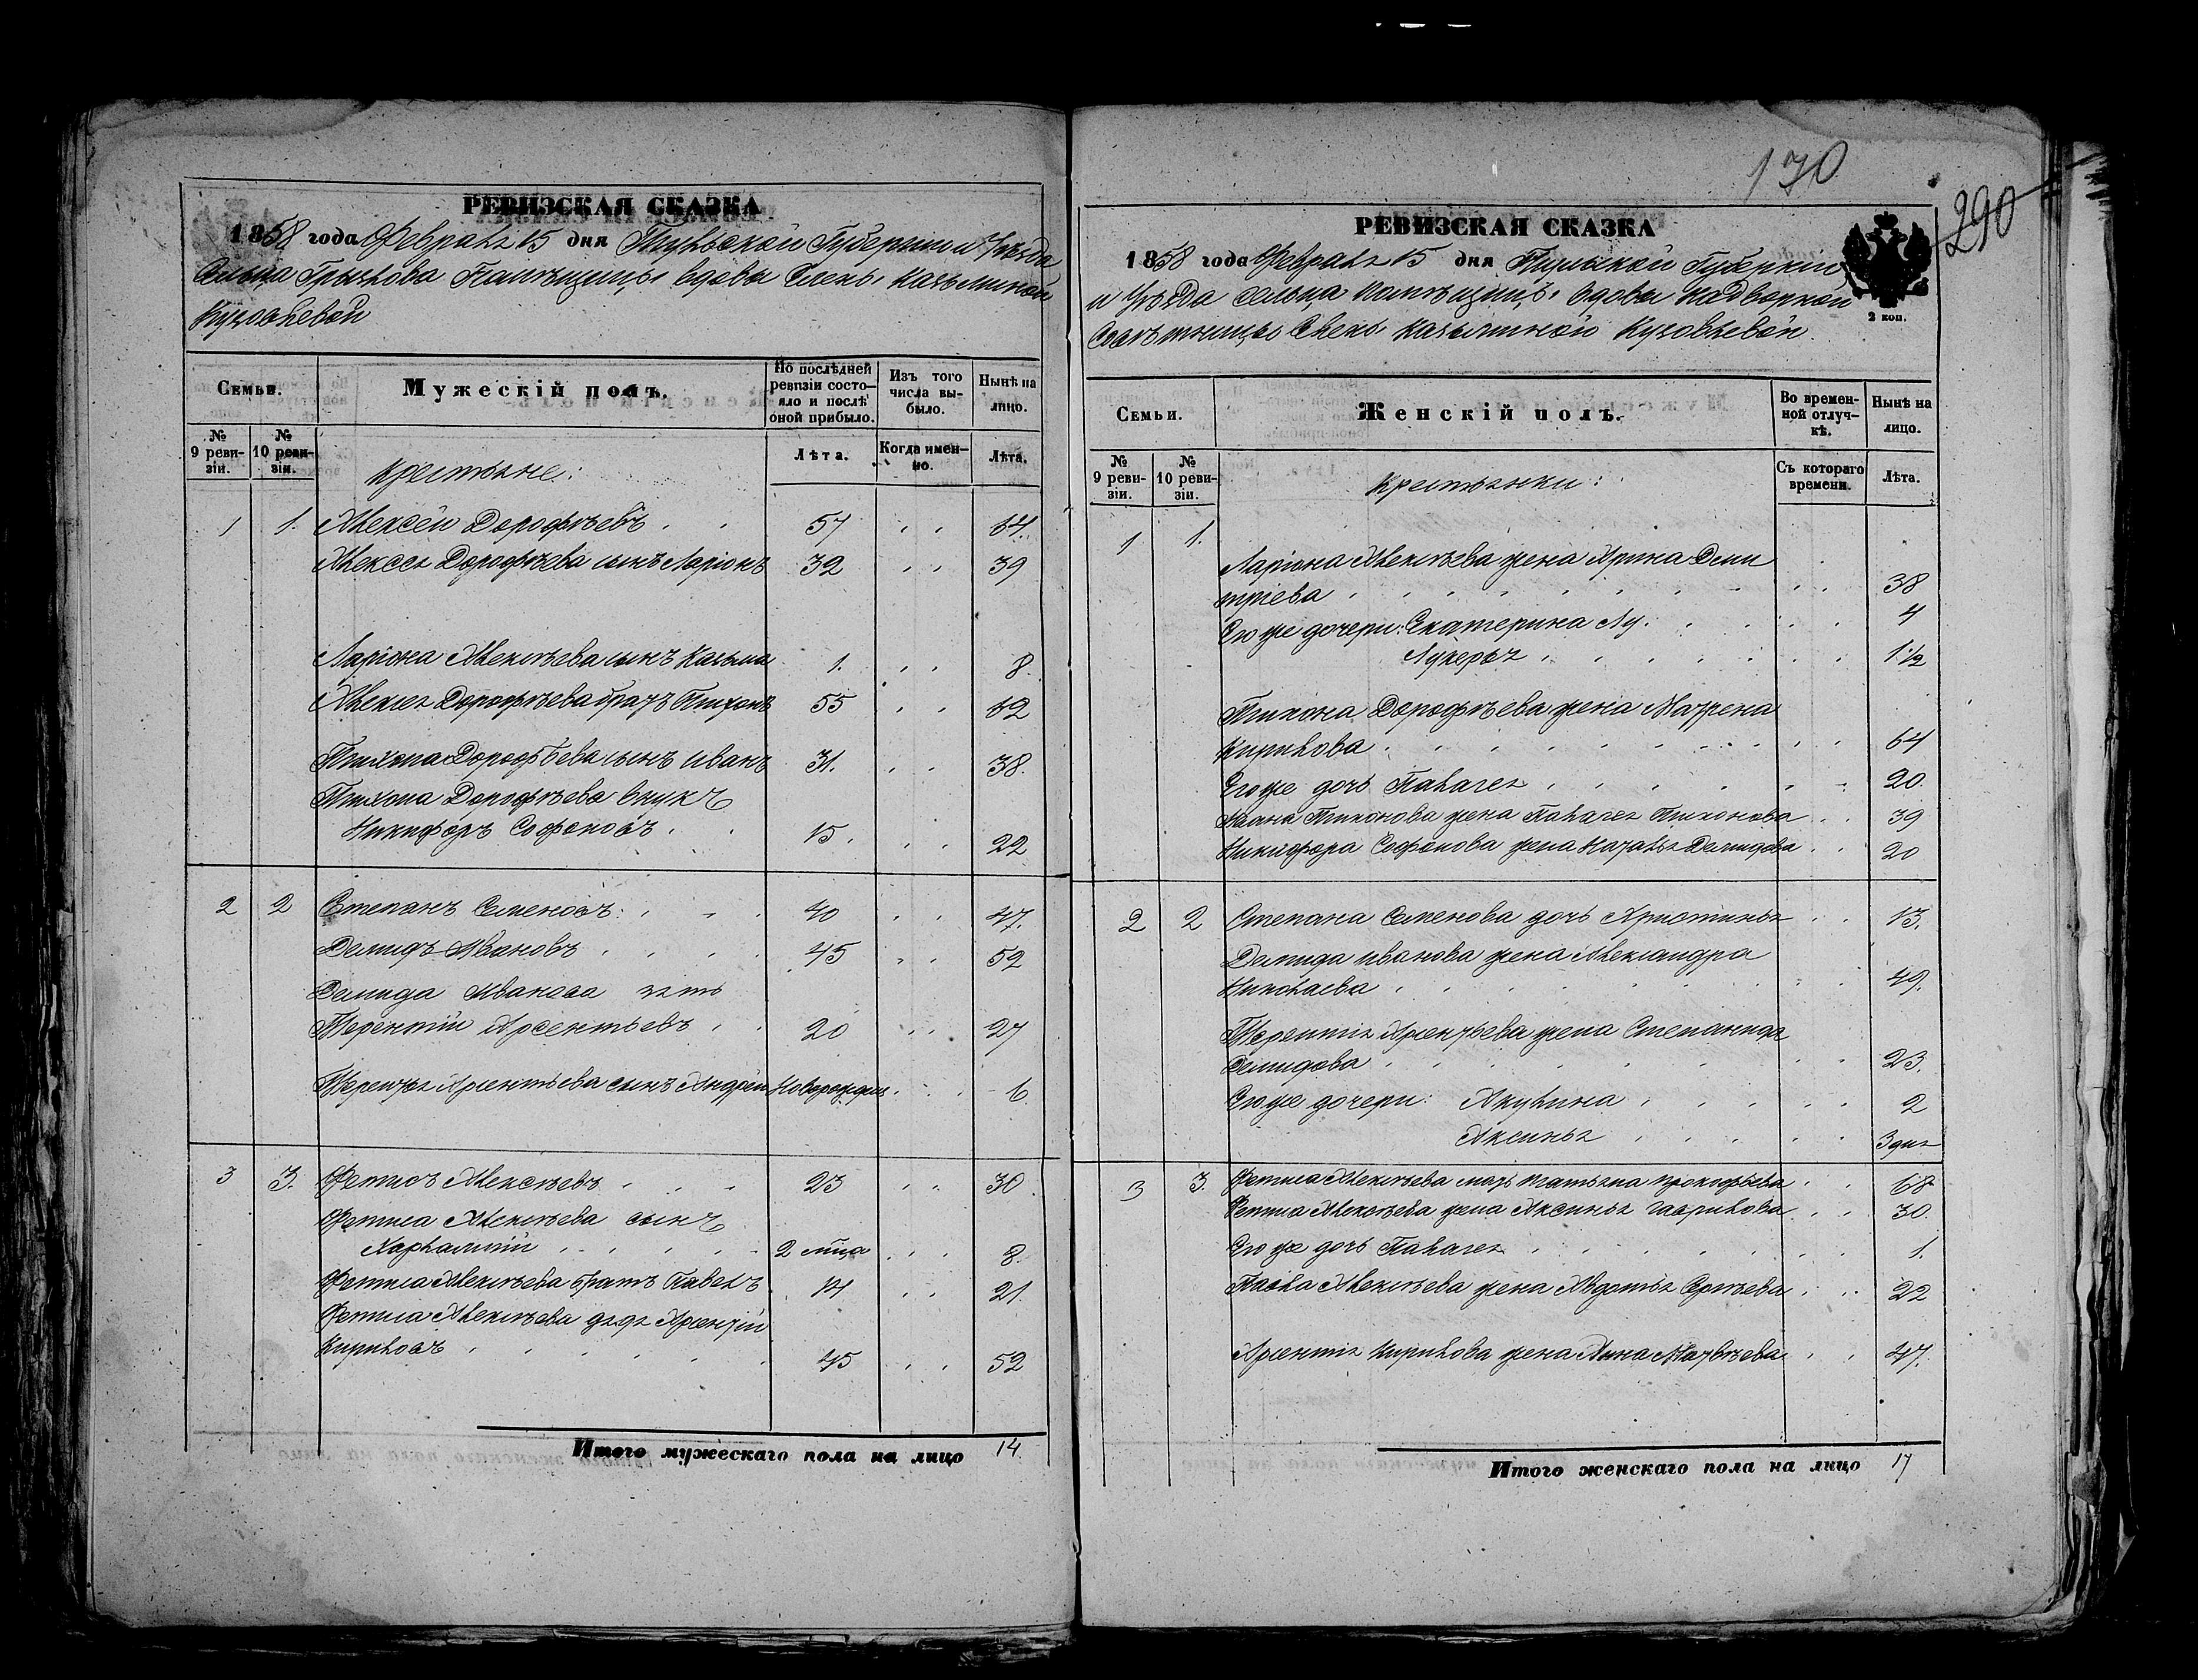 170
290
РЕВИЗСКАЯ СКАЗКА
1858 года Февраля 15 дня Тульской Губернiи и Уѣзда
Сельца Помѣщицы вдовы Елены Казьминой
РЕВИЗСКАЯ СКАЗКА
1858 года Февраля 15 дня Тульской Губернiи
и Уѣзда сельца помѣщицы вдовы надворной
Совѣтницы Елены Казьминой
2 коп.
Семьи.
Мужескій полъ.
По послѣдней ревизіи состояло и послѣ оной прибыло.
Изъ того числа выбыло.
Нынѣ на лицо.
№ 9 ревизіи.
№ 10 ревизіи.
Лѣта.
Когда именно.
Лѣта.
Крестьяне:
1 1. Алексѣй Дорофѣевъ 57 64.
Алексея Дорофѣева сынъ Ларіонъ 32 39
Ларіона Алексѣева сынъ Казьма 1. 8.
Алексея Дорофѣева братъ Тихонъ 55 62
Тихона Дорофѣева сынъ Иванъ 31. 38.
Тихона Дорофѣева внукъ
Никифоръ Софоновъ 15. 22
2 2 Степанъ Семеновъ 40 47.
Демидъ Ивановъ 45 52
Демида Иванова зять
Терентій Арсентьевъ 20 27
Терентья Арсентьева сынъ Андрей 6
3 3. Фетисъ Алексѣевъ 23 30.
Фетиса Алексѣева сынъ
Харлампій 2 мѣца 8.
Фетиса Алексѣева братъ Павелъ 14 21.
Фетиса Алексѣева дядя Арсентій
Кириловъ 45 52
Итого мужескаго пола на лицо 14
Семьи.
Женскій полъ.
Во временной отлучкѣ.
Нынѣ на лицо.
№ 9 ревизіи.
№ 10 ревизіи.
Съ котораго времени.
Лѣта.
Крестьянки:
1 1.
Ларіона Алексѣева жена Арина Дми
тріева 38
Его же дочери: Екатерина 4
Лукерья 1 1/2
Тихона Дорофѣева жена Матрена
Кирилова 64
Его же дочь Палагея 20.
Ивана Тихонова жена Палагея Тихонова 39
Никифора Софонова жена Наталья Демидова 20
2 2 Степана Семенова дочь Христинья 13.
Демида Иванова жена Александра
Николаева 49.
Терентія Арсентьева жена Степанида
Демидова 23.
Его же дочери: Акулина 2
Аксинья 3 дня
3 3. Фетиса Алексѣева мать Татьяна Прокофьева 68
Фетиса Алексѣева жена Аксинья Гаврилова 30.
Его же дочь Палагея 1.
Павла Алексѣева жена Авдотья Сергѣева 22
Арсентія Кирилова жена Анна Матвѣева 47.
Итого женскаго пола на лицо 17